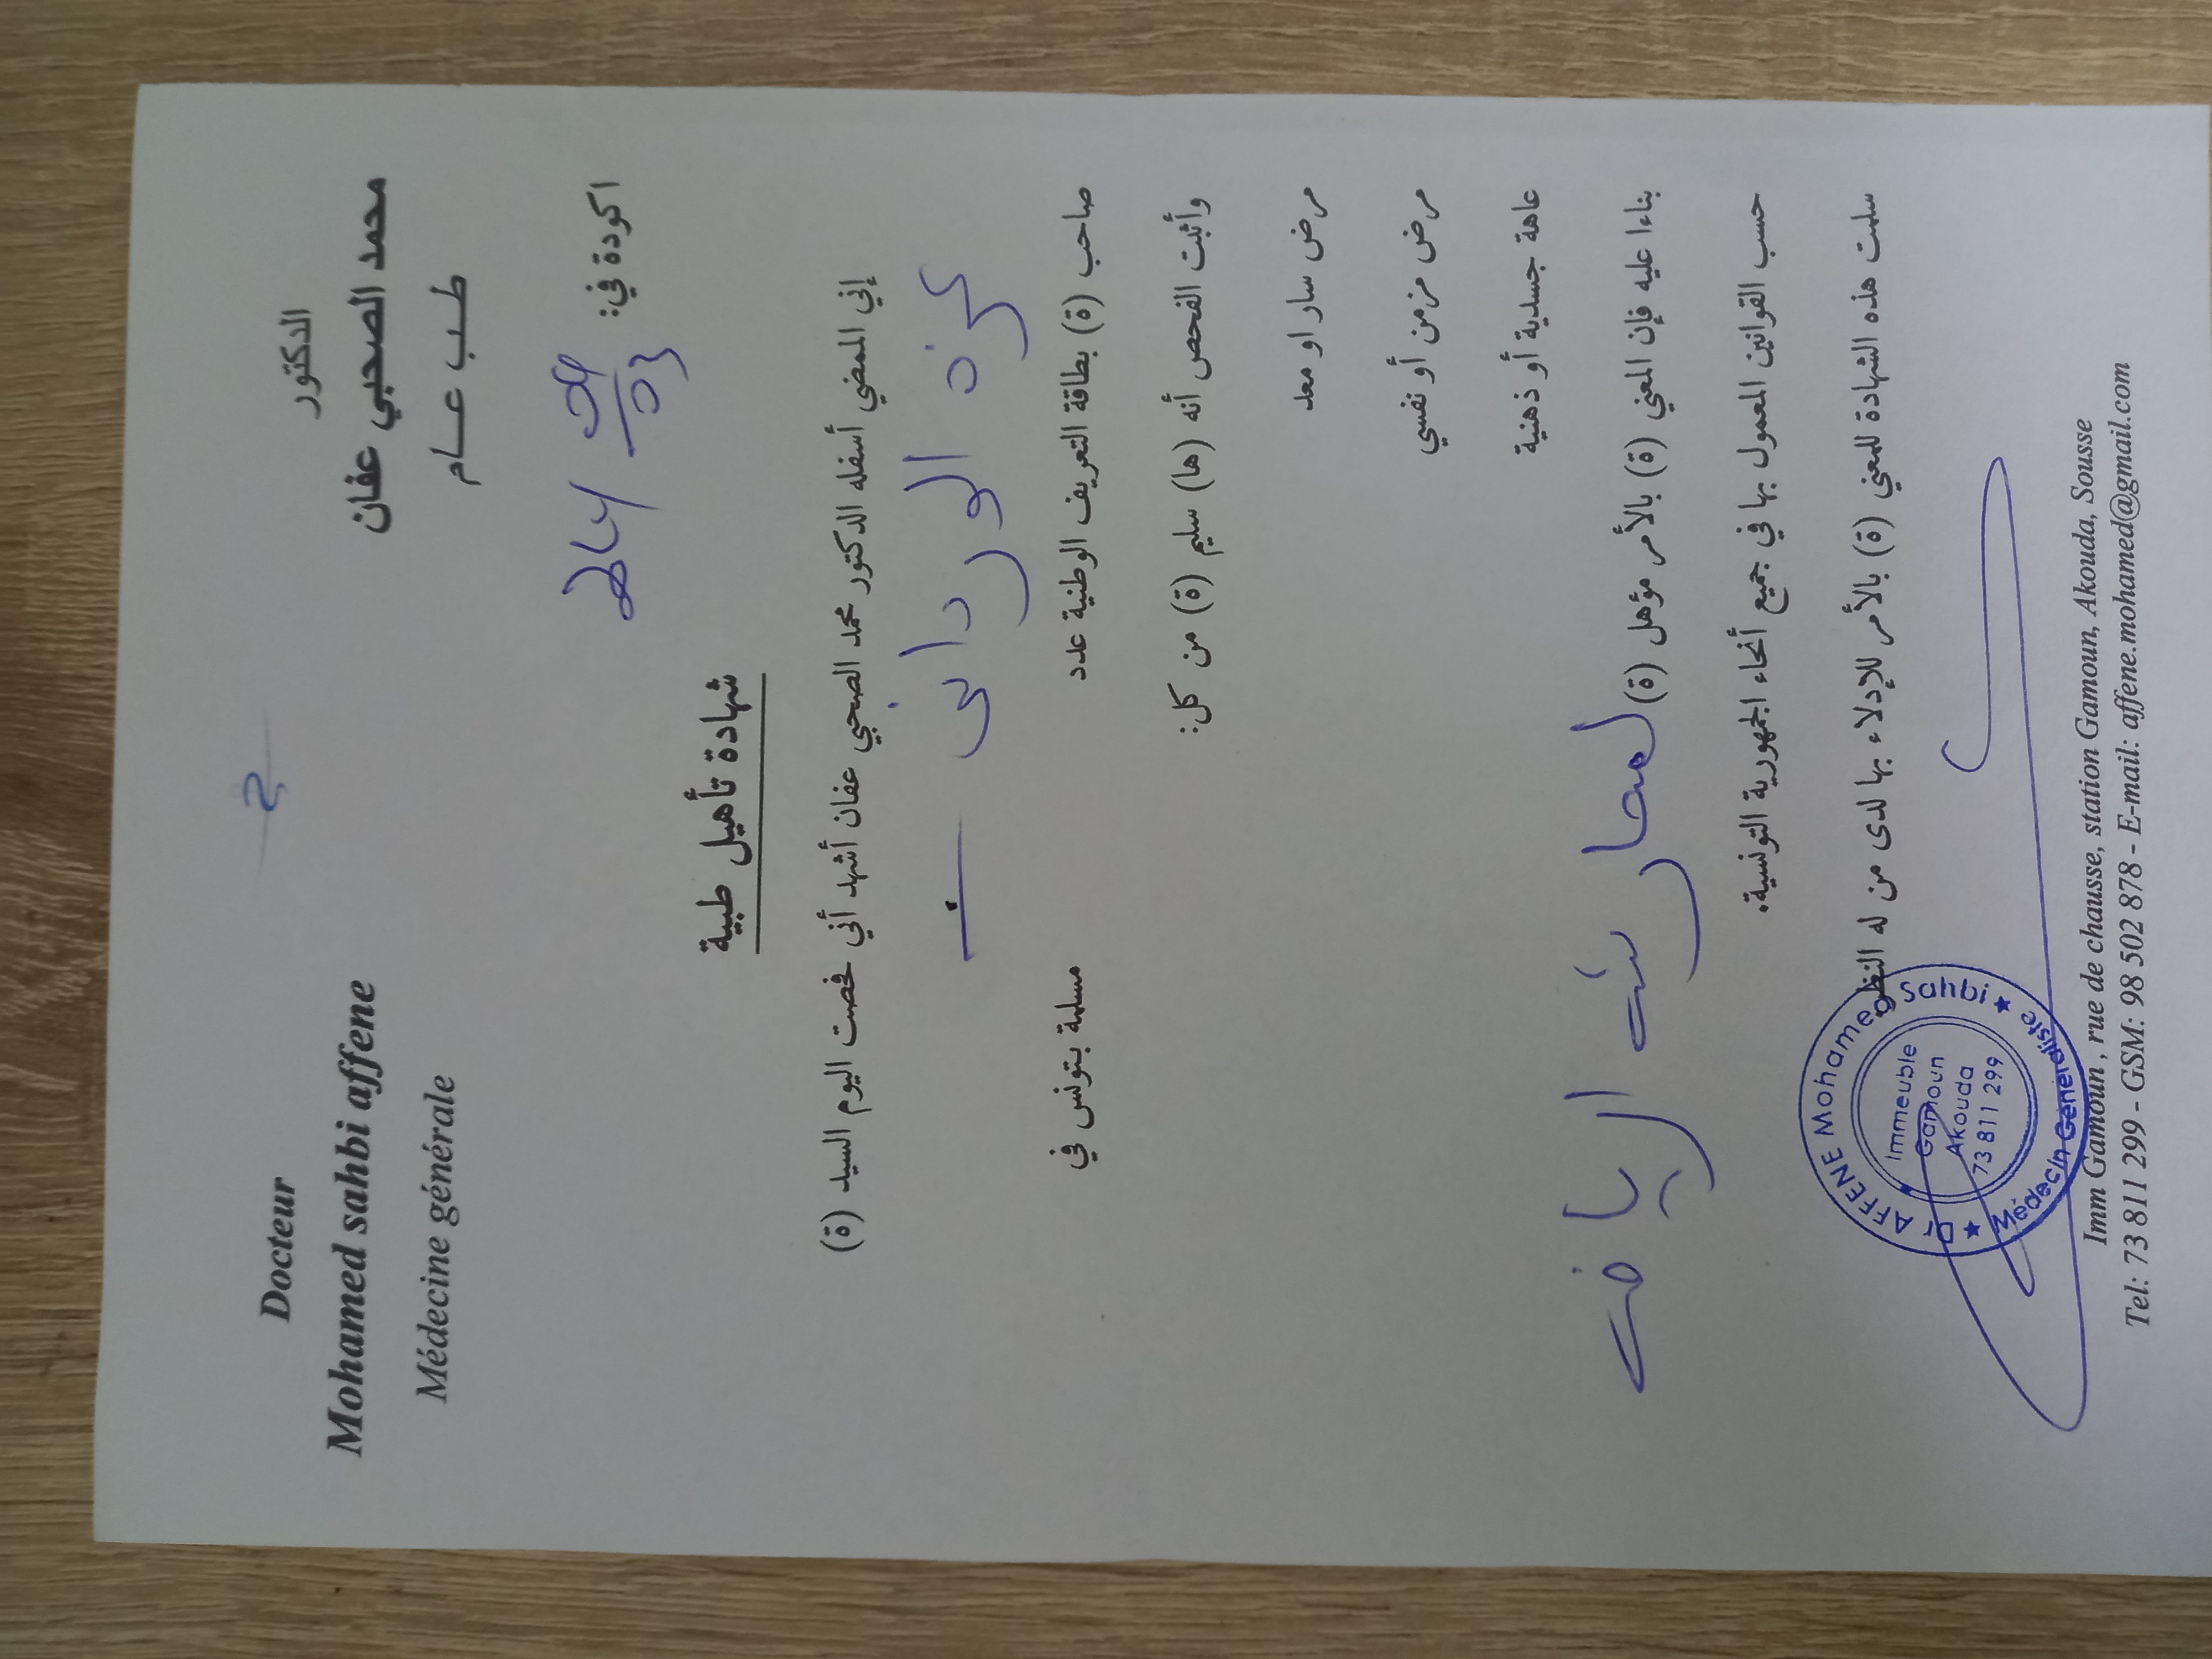 Docteur
Mohamed sahbi affene
Médecine générale
الدكتور
محمد الصحبي عفان
طب عام
اكودة في:
شهادة تأهيل طبية
إني الممضي أسفله الدكتور محمد الصحبي عفان أشهد أني فحصت اليوم السيد (ة)
الورداني
صاحب (ة) بطاقة التعريف الوطنية عدد مسلمة بتونس في
وأثبت الفحص أنه (ها) سليم (ة) من كل:
مرض سار او معد
مرض مزمن أو نفسي
عاهة جسدية أو ذهنية
بناءا عليه فإن المعني (ة) بالأمر مؤهل (ة) الرياضة
حسب القوانين المعمول بها في جميع أنحاء الجمهورية التونسية.
سلمت هذه الشهادة للمعني (ة) بالأمر للإدلاء بها لدى من له النظر
Dr AFFENE Mohamed Sahbi
Immeuble
Gamoun
Akouda
73 811 299
Médecin Généraliste
Imm Gamoun , rue de chausse, station Gamoun, Akouda, Sousse
Tel: 73 811 299 - GSM: 98 502 878 - E-mail: affene.mohamed@gmail.com